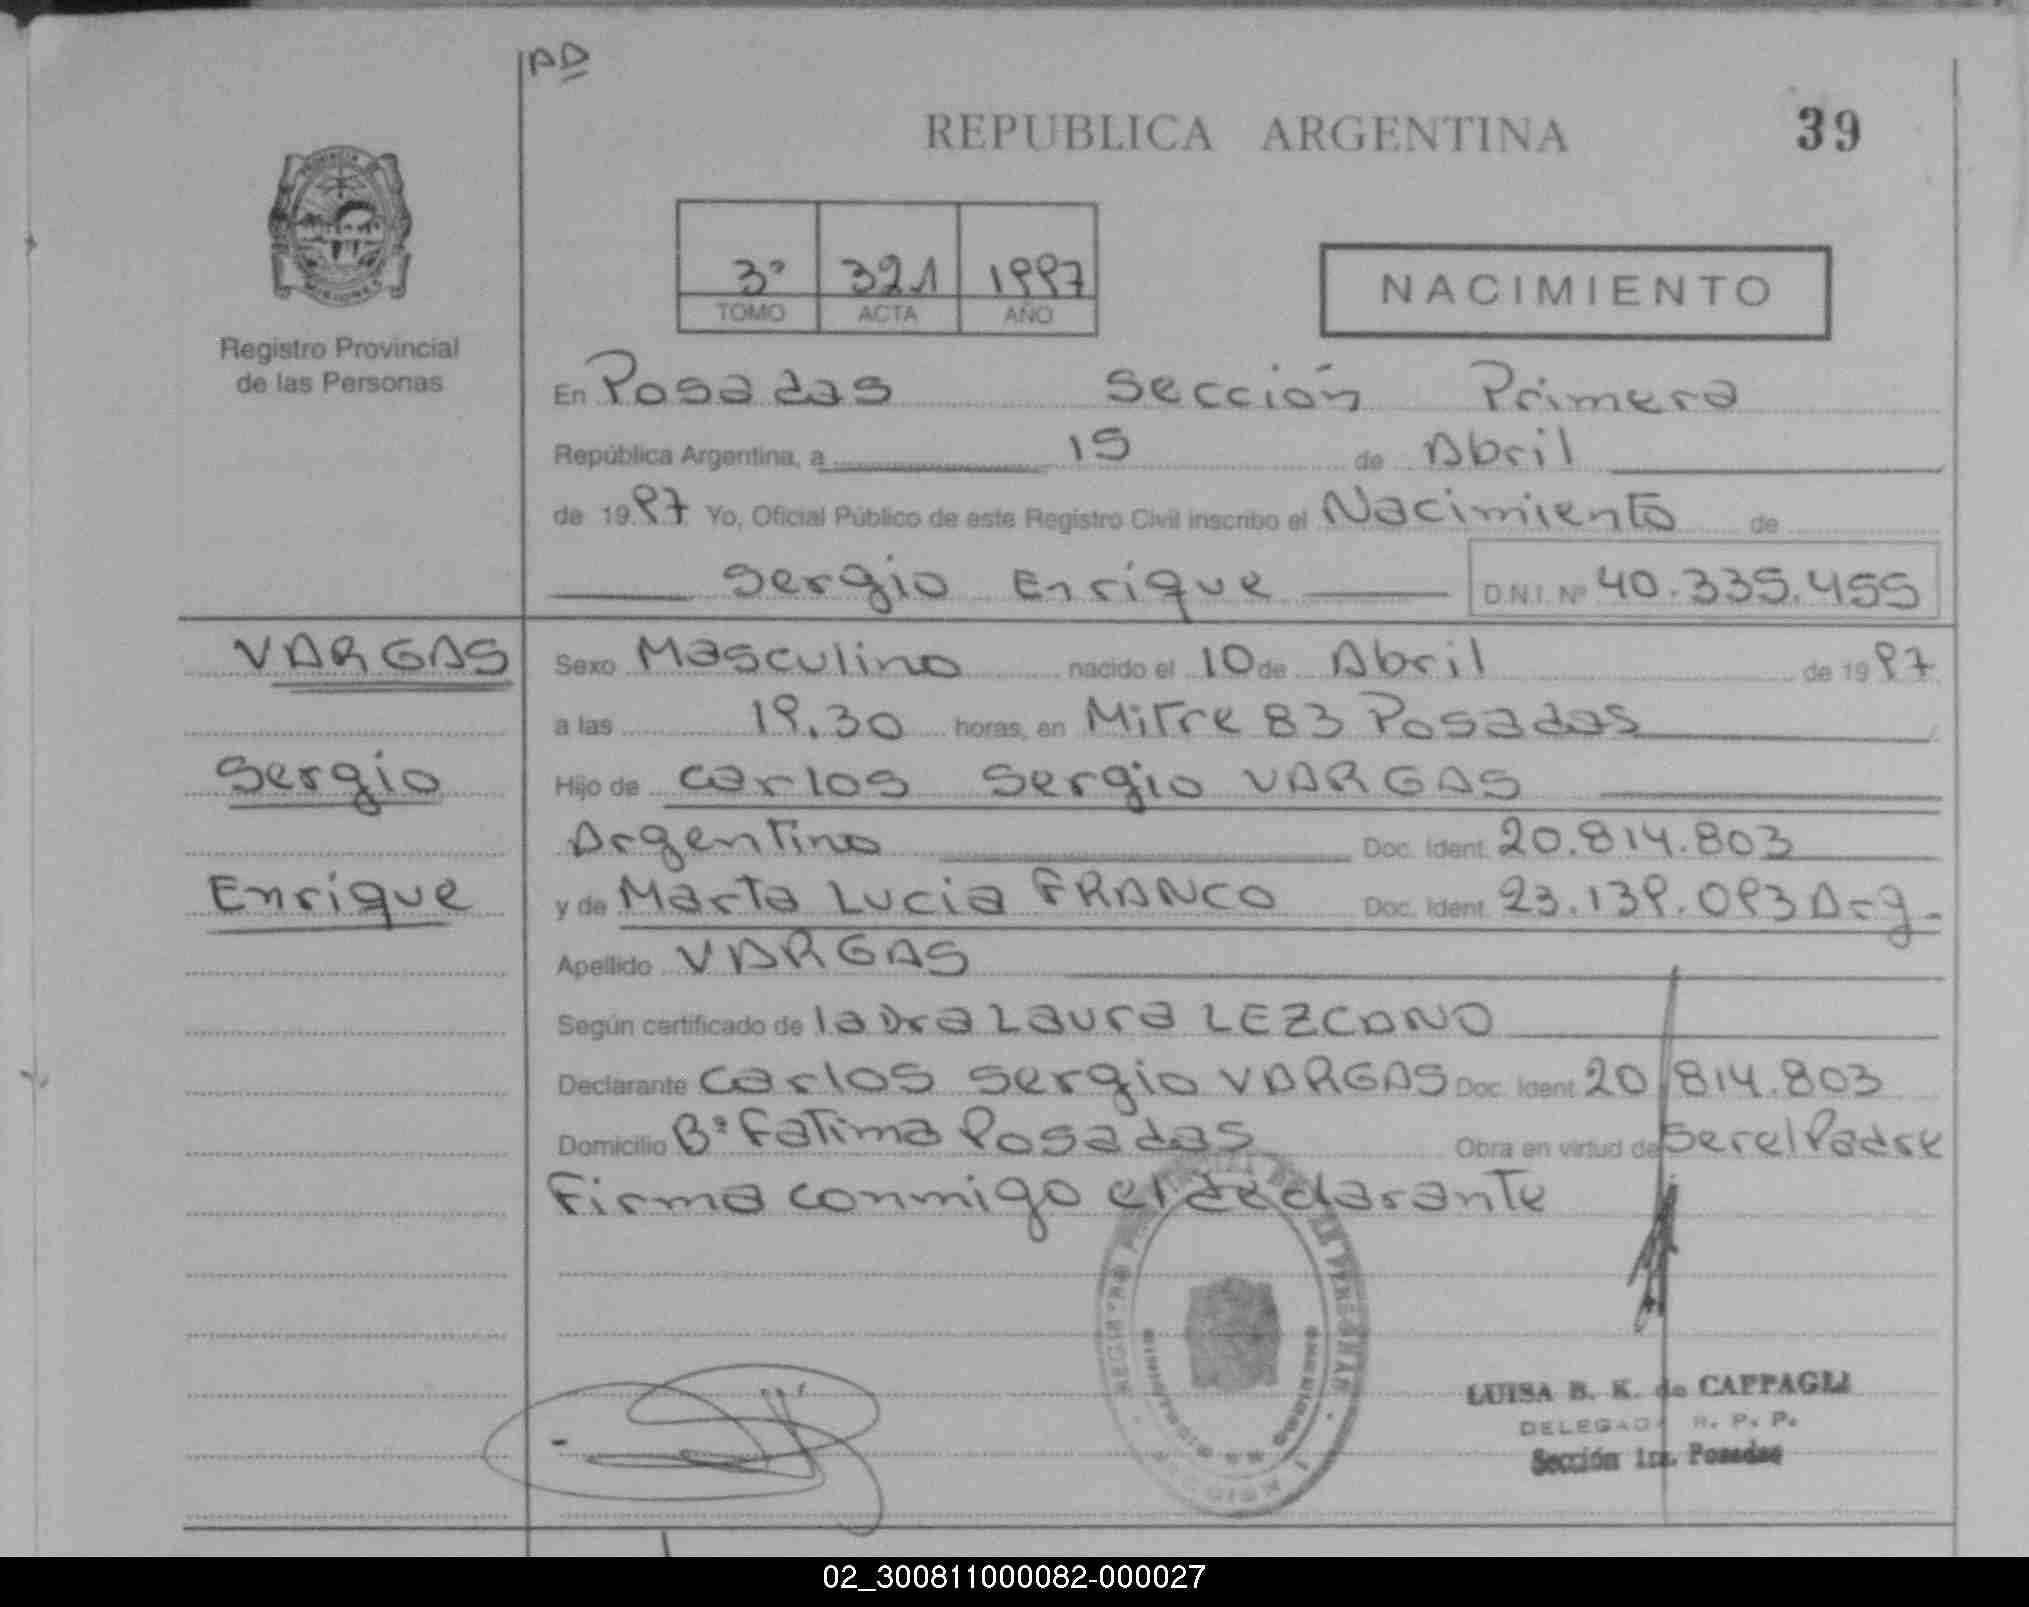 AD
REPUBLICA ARGENTINA 39
MISIONES
Registro Provincial
de las Personas
3º 321 1997
TOMO ACTA AÑO
NACIMIENTO
En Posadas Sección Primera
República Argentina, a 15 de Abril
de 1997 Yo, Oficial Público de este Registro Civil inscribo el Nacimiento de
Sergio Enrique D.N.I. Nº 40.335.455
VARGAS
Sergio
Enrique
Sexo Masculino nacido el 10 de Abril de 1997
a las 19.30 horas, en Mitre 83 Posadas
Hijo de Carlos Sergio VARGAS
Argentino Doc. Ident. 20.814.803
y de Marta Lucia FRANCO Doc. Ident. 23.139.093 Arg.
Apellido VARGAS
Según certificado de la Dra Laura LEZCANO
Declarante Carlos Sergio VARGAS Doc. Ident. 20 814.803
Domicilio Bº Fatima Posadas Obra en virtud de Ser el Padre
Firma conmigo el declarante
LUISA B. K. de CAPPAGLI
DELEGADA R. P. P.
Sección 1ra. Posadas
02_300811000082-000027